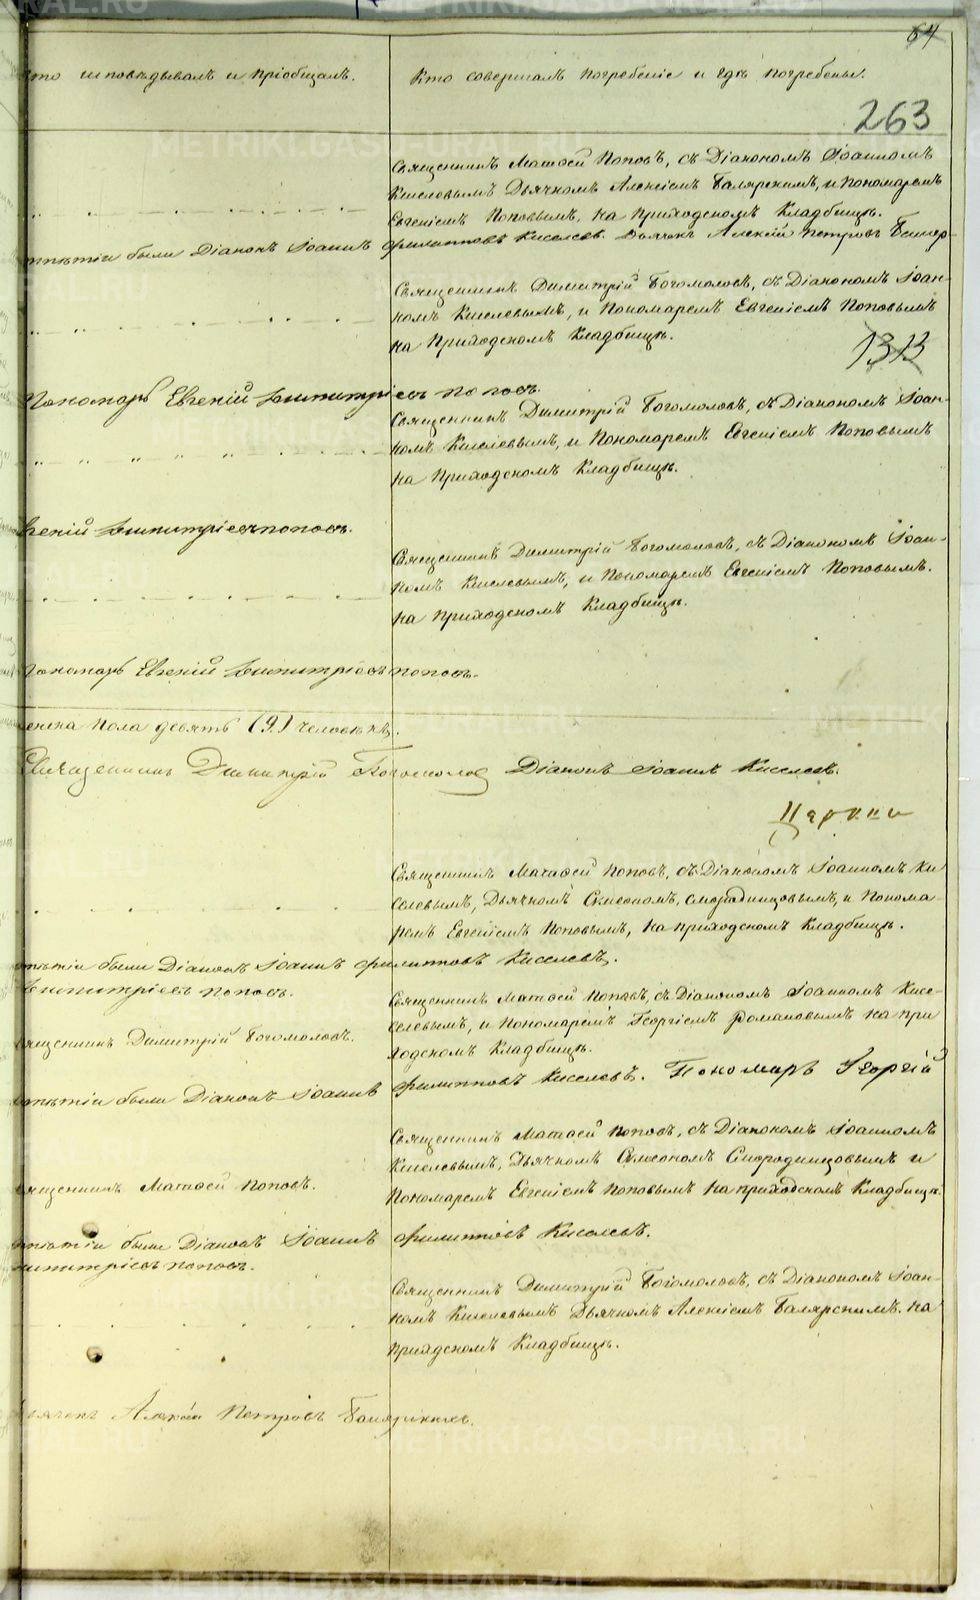 64
Кто исповѣдывалъ и пріобщалъ.
Кто совершалъ погребеніе и гдѣ погребены.
263
Священникъ Матѳей Поповъ, съ Діакономъ Іоанномъ
Киселевымъ Дьячкомъ Алексіемъ Баляркинымъ, и Пономаремъ
Евгеніемъ Поповымъ, на приходскомъ Кладбищѣ.
были Діаконъ Іоаннъ Филипповъ Киселевъ. Дьячекъ Алексій Петровъ
Священникъ Димитрій Богомоловъ, съ Діакономъ Іоан-
номъ Киселевымъ, и Пономаремъ Евгеніемъ Поповымъ
на Приходскомъ Кладбищѣ.
1313
Пономарь Евгеній Димитріевъ Поповъ.
Священникъ Димитрій Богомоловъ, съ Діакономъ Іоан-
номъ Киселевымъ, и Пономаремъ Евгеніемъ Поповымъ
на Приходскомъ Кладбищѣ.
Евгеній Димитріевъ Поповъ.
Священникъ Димитрій Богомоловъ, съ Діакономъ Іоан-
номъ Киселевымъ, и Пономаремъ Евгеніемъ Поповымъ.
на приходскомъ Кладбищѣ.
Пономарь Евгеній Димитріевъ Поповъ.
женска пола девять (9) человѣкъ.
Священникъ Димитрій Богомоловъ Діаконъ Іоаннъ Киселевъ.
Церкви
Священникъ Матѳей Поповъ, съ Діакономъ Іоанномъ Ки
селевымъ, Дьячкомъ Симеономъ, Смородинцовымъ, и Понома-
ремъ Евгеніемъ Поповымъ, на приходскомъ Кладбищѣ.
были Діаконъ Іоаннъ Филипповъ Киселевъ.
Димитріевъ Поповъ.
Священникъ Матѳей Поповъ, съ Діакономъ Іоанномъ Кисе-
селевымъ, и Пономаремъ Георгіемъ Романовымъ на при
ходскомъ Кладбищѣ.
Священникъ Димитрій Богомоловъ.
были Діаконъ Іоаннъ Филипповъ Киселевъ. Пономарь Георгій
Священникъ Матѳей Поповъ, съ Діакономъ Іоанномъ
Киселевымъ, Дьячкомъ Симеономъ Смородинцовымъ и
Пономаремъ Евгеніемъ Поповымъ на приходскомъ Кладбищѣ.
Священникъ Матѳей Поповъ.
были Діаконъ Іоаннъ Филипповъ Киселевъ.
Димитріевъ Поповъ.
Священникъ Димитрій Богомоловъ, съ Діакономъ Іоан-
номъ Киселевымъ Дьячкомъ Алексіемъ Баляркинымъ. на
приходскомъ Кладбищѣ.
Дьячекъ Алексій Петровъ Баляркинъ.
METRIKI.GASO-URAL.RU